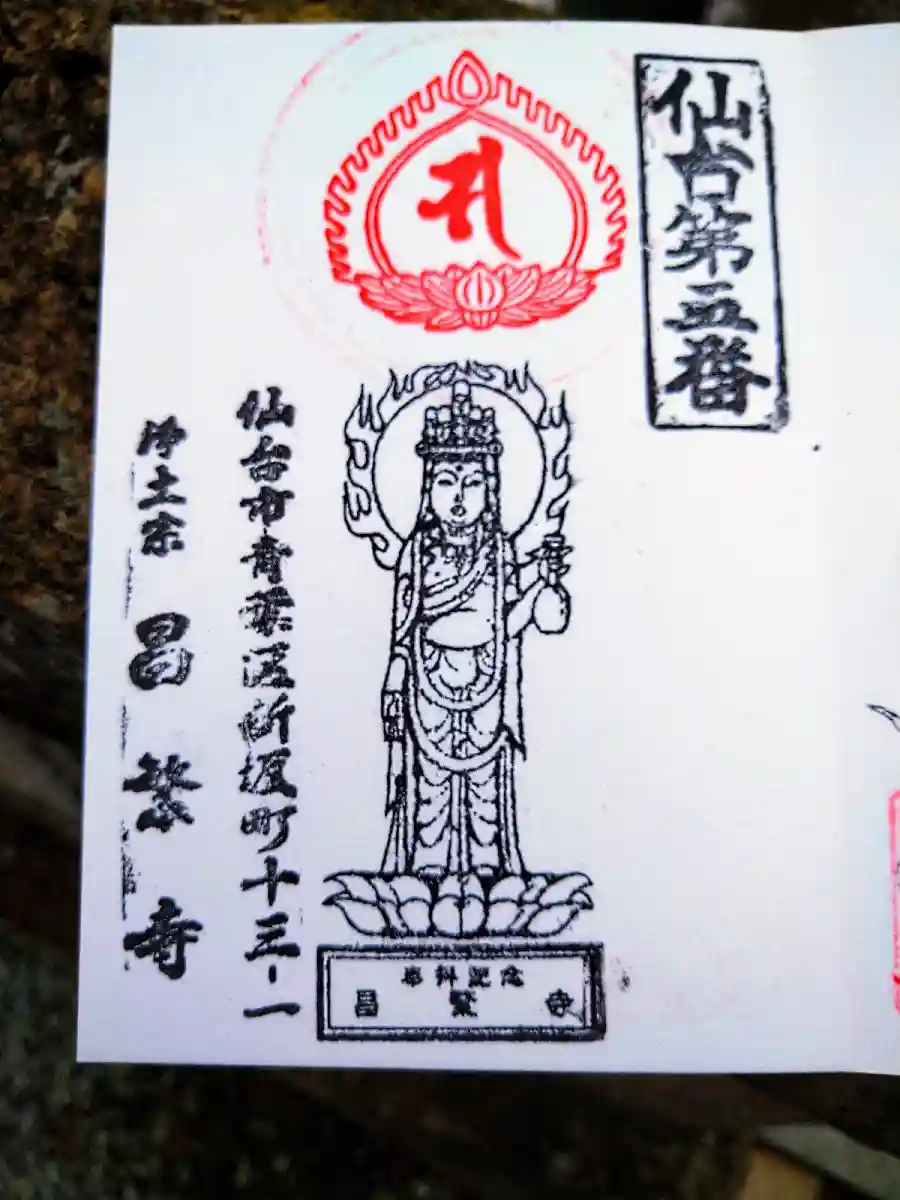 仙台第五番
仙台市青葉区新坂町十三-一
浄土宗 昌繁寺
専科記念
昌繁寺